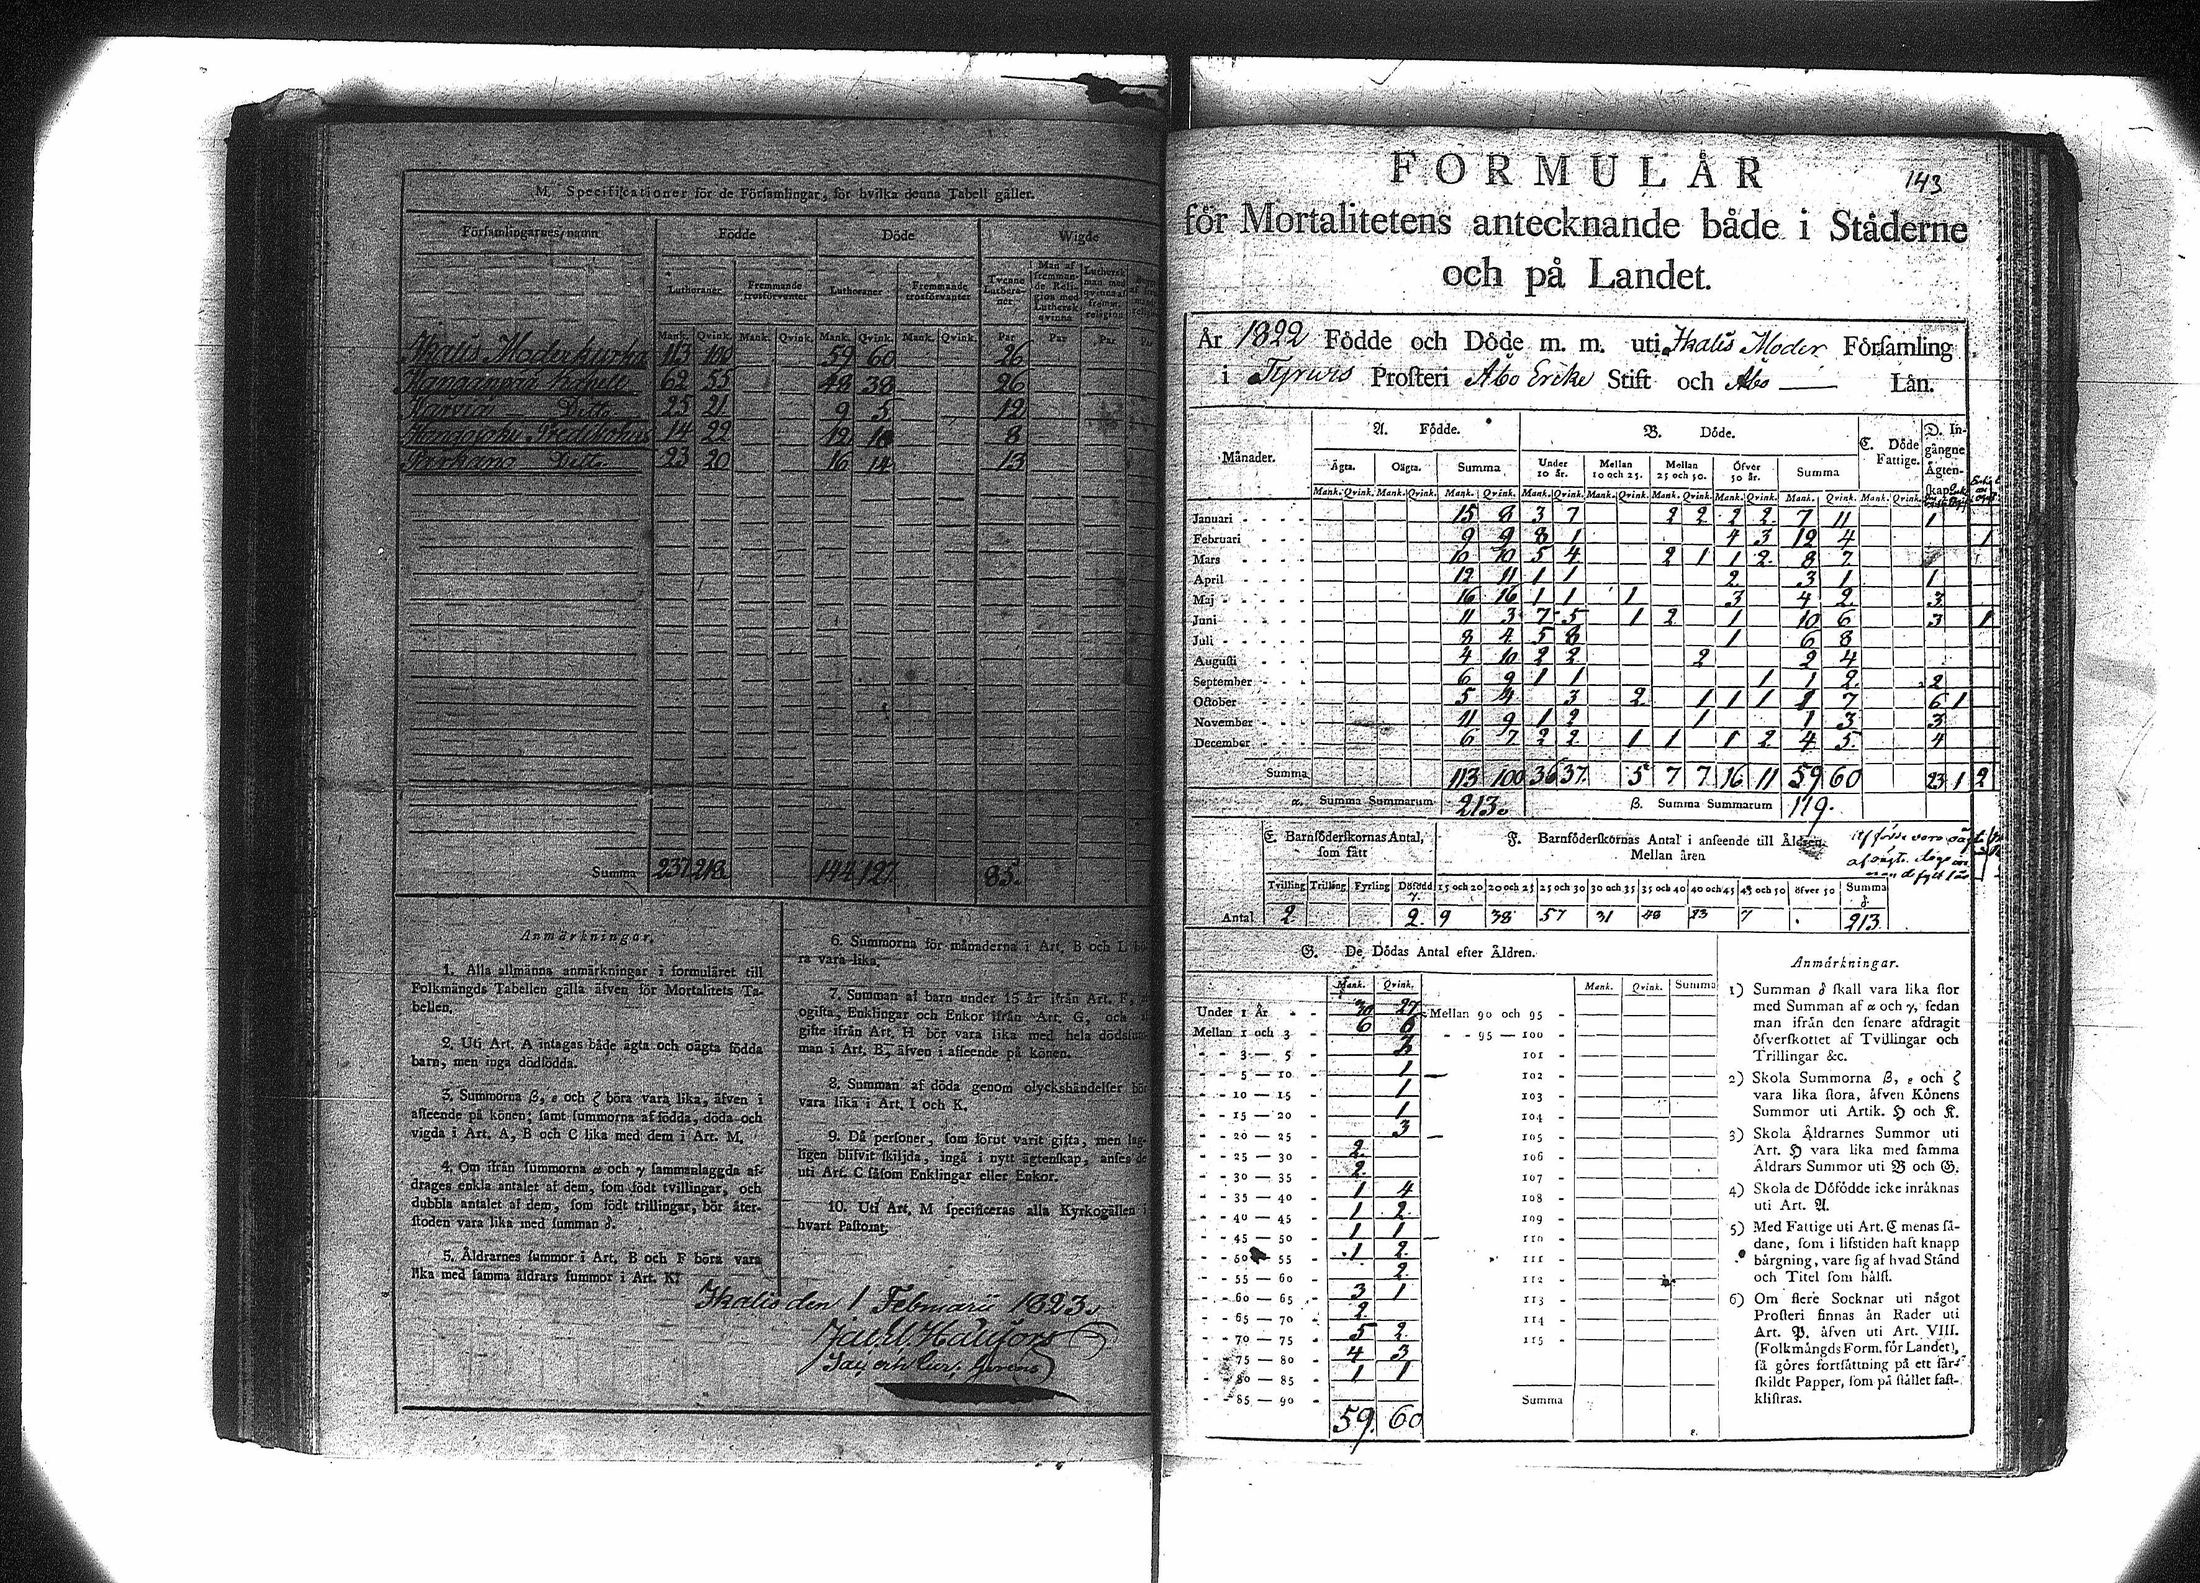 M. Specificationer för de Församlingar, för hvilka denna Tabell gäller.
Församlingarnes namn Födde Döde Wigde
Lutheraner Fremmande trosförvanter Lutheraner Fremmande trosförvanter Tvenne Lutheraner Man af fremmande Religion med Luthersk qvinna Luthersk man med qvinna af fremm. religion
Mank. Qvink. Mank. Qvink. Mank. Qvink. Mank. Qvink. Par Par Par
Ikalis Moderkyrka 113 100 59 60 26
Kanganpää Kapell 62 55 48 38 26
Karvia Ditto 25 21 9 5 12
14 22 12 10 8
Parkano Ditto 23 20 16 14 13
Summa 237 218 144 127 85.
Anmärkningar.
1. Alla allmänna anmärkningar i formuläret till
Folkmängds Tabellen gälla äfven för Mortalitets Ta-
bellen.
2. Uti Art. A intagas både ägta och oägta födda
barn, men inga dödfödda.
3. Summorna β, ε och ζ böra vara lika, äfven i
afseende på könen; samt summorna af födda, döda och
vigda i Art. A, B och C lika med dem i Art. M.
4. Om ifrån summorna α och γ sammanlaggda af-
drages enkla antalet af dem, som födt tvillingar, och
dubbla antalet af dem, som födt trillingar, bör åter-
stoden vara lika med summan δ.
5. Åldrarnes summor i Art. B och F böra vara
lika med samma åldrars summor i Art. K.
6. Summorna för månaderna i Art. B och L bö-
ra vara lika.
7. Summan af barn under 15 år ifrån Art. F,
ogifta, Enklingar och Enkor ifrån Art. G, och
gifte ifrån Art. H bör vara lika med hela dödssum-
man i Art. B, äfven i afseende på könen.
8. Summan af döda genom olyckshändelser bör
vara lika i Art. I och K.
9. Då personer, som förut varit gifta, men lag-
ligen blifvit skiljda, ingå i nytt ägtenskap, anses de
uti Art. C såsom Enklingar eller Enkor.
10. Uti Art. M specificeras alla Kyrkogällen i
hvart Pastorat.
Ikalis den 1 Februarii 1823.
FORMULÄR
143
för Mortalitetens antecknande både i Städerne
och på Landet.
År 1822 Födde och Döde m. m. uti Ikalis Moder Församling
i Tyrwis Prosteri Åbo Ercke Stift och Åbo Län.
Månader. A. Födde. B. Döde. C. Döde Fattige. D. Ingångne Ägtenskap
Ägta. Oägta. Summa Under 10 år. Mellan 10 och 25. Mellan 25 och 50. Öfver 50 år. Summa
Mank. Qvink. Mank. Qvink. Mank. Qvink. Mank. Qvink. Mank. Qvink. Mank. Qvink. Mank. Qvink. Mank. Qvink. Mank. Qvink.
Januari 15 8 3 7 2 2 2 2 7 11 1
Februari 9 9 8 1 4 3 12 4 1
Mars 10 10 5 4 2 1 1 2 8 7
April 12 11 1 1 2 3 1 1
Maj 16 16 1 1 1 3 4 2 3
Juni 11 3 7 5 1 2 1 10 6 3 1
Juli 8 4 5 8 1 6 8
Augusti 4 10 2 2 2 2 4
September 6 9 1 1 1 1 2 2
October 5 4 3 2 1 1 1 1 7 6 1
November 11 9 1 2 1 1 3 3
December 6 7 2 2 1 1 1 2 4 5 4
Summa 113 100 36 37 5 7 7 16 11 59 60 23 1 2
α. Summa Summarum 213. β. Summa Summarum 119.
E. Barnföderskornas Antal, som fått F. Barnföderskornas Antal i anseende till Åldren. Mellan åren
Tvilling Trilling Fyrling Döfödd 15 och 20 20 och 25 25 och 30 30 och 35 35 och 40 40 och 45 45 och 50 öfver 50 Summa
γ. δ.
Antal 2 2. 9 38 57 31 48 23 7 213
G. De Dödas Antal efter Åldren.
Mank. Qvink. Mank. Qvink. Summa
Under 1 År 30 27 Mellan 90 och 95
Mellan 1 och 3 6 8 95 — 100
3 — 5 2 101
5 — 10 1 102
10 — 15 1 103
15 — 20 1 104
20 — 25 3 105
25 — 30 2 106
30 — 35 2 107
35 — 40 1 4 108
40 — 45 1 2 109
45 — 50 1 1 110
50 — 55 1 2 111
55 — 60 2 112
60 — 65 3 1 113
65 — 70 2 114
70 — 75 5 2 115
75 — 80 4 3
80 — 85 1 1
85 — 90 Summa
59. 60
Anmärkningar.
1) Summan δ skall vara lika stor
med Summan af α och γ, sedan
man ifrån den senare afdragit
öfverskottet af Tvillingar och
Trillingar &c.
2) Skola Summorna β, ε och ζ
vara lika stora, äfven Könens
Summor uti Artik. H och K.
3) Skola Åldrarnes Summor uti
Art. H vara lika med samma
Åldrars Summor uti B och G.
4) Skola de Döfödde icke inräknas
uti Art. A.
5) Med Fattige uti Art. C menas så-
dane, som i lifstiden haft knapp
bärgning, vare sig af hvad Stånd
och Titel som hälst.
6) Om flere Socknar uti något
Prosteri finnas än Rader uti
Art. P. äfven uti Art. VIII.
(Folkmängds Form. för Landet),
så göres fortsättning på ett sär-
skildt Papper, som på stället fast-
klistras.